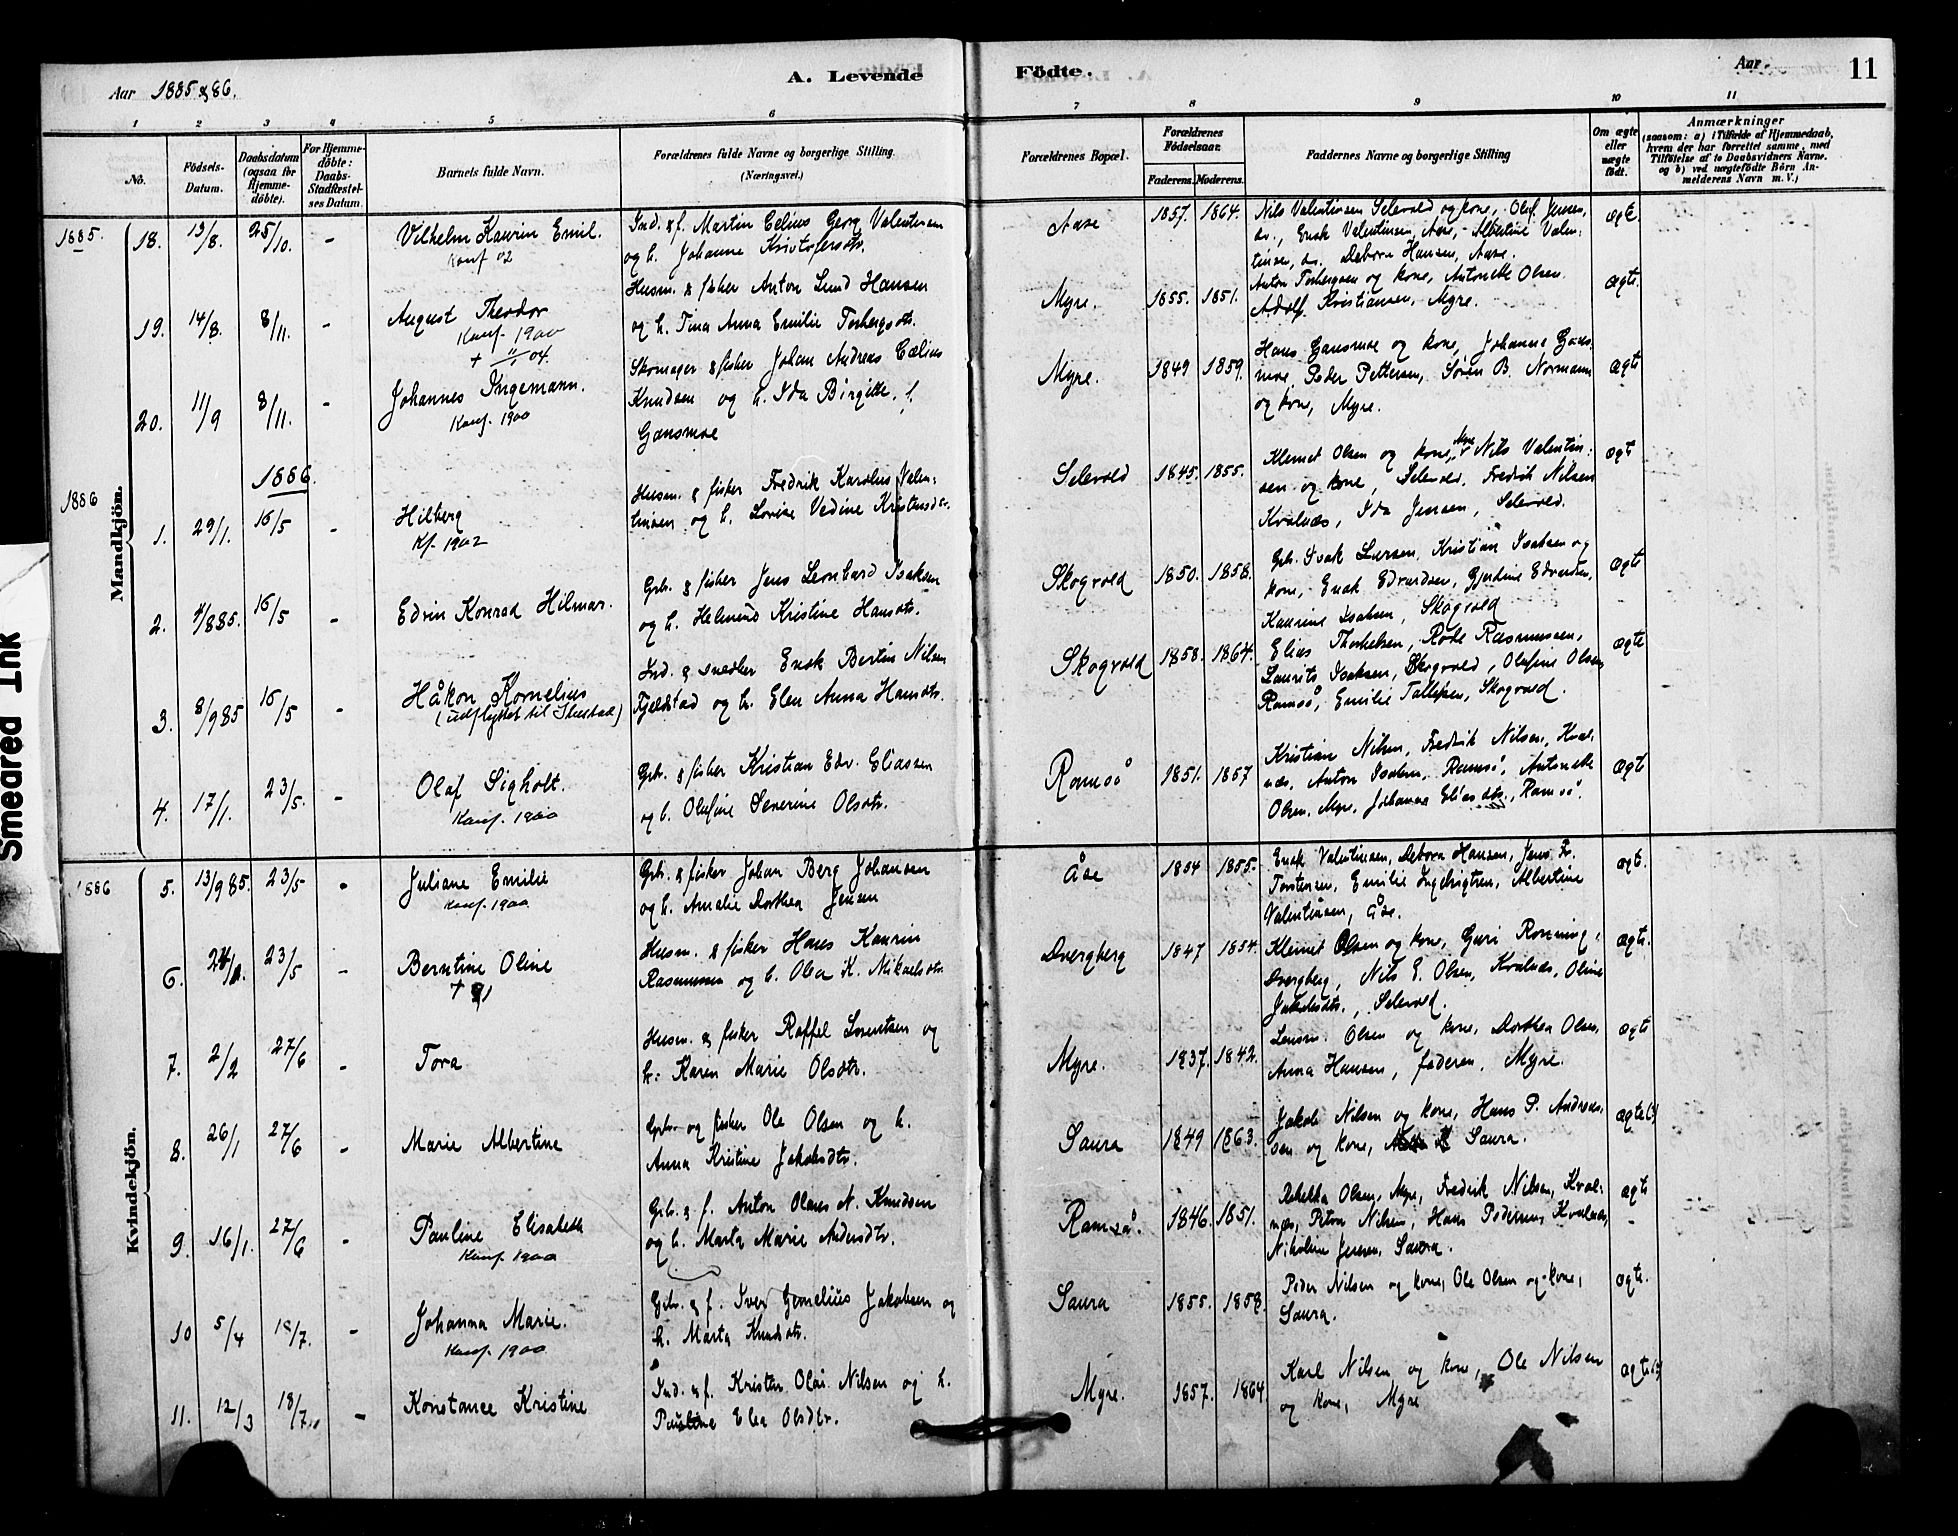 Aar 1885 & 86.
A. Levende Födte.
Aar.
11
1 2 3 4 5 6 7 8 9 10 11
No.
Födsels-
Datum.
Daabsdatum
(ogsaa for
Hjemme-
döbte).
For Hjemme-
döbte:
Daabs-
Stadfæstel-
ses Datum.
Barnets fulde Navn.
Forældrenes fulde Navne og borgerlige Stilling
(Næringsvei.)
Forældrenes Bopæl.
Forældrenes
Födselsaar.
Faderens. Moderens.
Faddernes Navne og borgerlige Stilling
Om ægte
eller
uægte
födt.
Anmærkninger
(saasom: a) i Tilfælde af Hjemmedaab,
hvem der har forrettet samme, med
Tilföielse af to Daabsvidners Navne.
og b) ved uægtefödte Börn An-
melderens Navn m. V.)
Mandkjön.
1885.
18. 13/8. 25/10. - Vilhelm Kaurin Emil.
Konf 02
Ind. & f. Martin Celius Georg Valentinsen
og h. Johanne Kristofersdtr.
Aase 1857. 1864.
Nils Valentinsen Selevold og kone, Oluf Jensen,
ds., Enok Valentinsen, Aase, - Albertine Valen-
tinsen, ds. Debora Hansen, Aase.
ægte.
19. 14/8. 8/11. - August Theodor
Konf. 1900
+ 04.
Husm. & fisker Anton Lund Hansen
og h. Tina Anna Emilie Torbergsdtr.
Myre. 1855. 1851.
Anton Torbergsen og kone, Antonette Olsen.
Adolf Kristiansen, Myre.
ægte.
20. 11/9 8/11. - Johannes Ingemann.
Konf. 1900
Skomager & fisker Johan Andreas Cælius
Knudsen og h. Ida Birgitte, f.
Gansmoe
Myre. 1849 1859.
Hans Gansmoe og kone, Johanne Gans-
moe, Peder Pettersen, Sören B. Normann
og kone, Myre.
ægte
1886
1886.
1. 29/1. 16/5 - Hilberg
Kf. 1902
Husm. & fisker Fredrik Karolius Valen-
tinsen og h. Lovise Vedine Kristensdr.
Selevold 1845. 1855.
Klemet Olsen og kone, Myre Nils Valentin-
sen og kone, Selevold. Fredrik Nilsen
Kvalnæs, Ida Jensen, Selevold.
ægt
2. 4/885. 16/5 - Edvin Konrad Hilmar.
Grb. & fisker Jens Leonhard Isaksen
og h. Helmine Kristine Hansdtr.
Skogvold 1850. 1858.
Grb. Isak Larsen, Kristian Isaksen og
kone, Enok Edvardsen, Gjertine Edvardsen,
Kaurine Isaksen, Skogvold
ægte
3. 8/985 16/5 - Håkon Kornelius
(udflyttet til )
Ind. & snedker Enok Bertin Nilsen
Fjeldstad og h. Elen Anna Hansdtr.
Skogvold 1858. 1864.
Elias Thorkelsen, Röde Rasmussen,
Laurits Isaksen, Skogvold, Olufine Olsen
Ramsö, Emilie Tollefsen, Skogvold.
ægte
4. 17/1. 23/5. - Olaf Sigholt.
Konf. 1900
Grb. & fisker Kristian Edv. Eliassen
og h. Olufine Severine Olsdtr.
Ramsö 1851. 1857
Kristian Nilsen, Fredrik Nilsen, Kval-
næs, Anton Isaksen, Ramsö, Antonette
Olsen, Myre, Johanna Eliasdtr., Ramsö.
ægte
Kvindekjön.
1886
5. 13/9 85. 23/5 - Juliane Emilie
Konf. 1900
Grb. & fisker Johan Berg Johansen
og h. Amalie Dorthea Jensen
Åse 1854 1855.
Enok Valentinsen, Debora Hansen, Jens Fr.
Torstensen, Emilie Ingebrigtsen, Albertine
Valentinsen, Åse.
ægte.
6. 23/5 - Berntine Oline
+ 91
Husm. & fisker Hans Kaurin
Rasmussen og h. Olea K. Mikalsdtr.
Dvergberg 1847 1854.
Klemet Olsen og kone, Guri Rönning,
Dvergberg, Nils E. Olsen, Kvalnæs, Oline
Jakobsdtr., Selevold.
ægte.
7. 2/2 27/6 - Tora
Husm. & fisker Raffel Lorentsen og
h. Karen Marie Olsdtr.
Myre. 1837. 1842.
Lensm. Olsen og kone, Dorthea Olsen,
Anna Hansen, faderen, Myre.
ægte
8. 26/1 27/6 - Marie Albertine
Grb. og fisker Ole Olsen og h.
Anna Kristine Jakobsdtr.
Saura 1849 1863.
Jakob Nilsen og kone, Hans P. Andreas-
sen og kone, Saura.
ægte
9. 16/1. 27/6 - Pauline Elisabeth
Konf. 1900
Grb. & f. Anton Olaus N. Knudsen
og h. Marta Marie Andersdtr.
Ramså. 1846. 1851.
Rebekka Olsen, Myre, Fredrik Nilsen, Kval-
næs, Petra Nilsen, Hans Pedersen, Kvalnæs,
Nikoline Jensen, Saura.
ægte
10 5/4 18/7. - Johanna Marie.
Konf. 1900
Grb. & f. Iver Cornelius Jakobsen og
h. Marta Knudsdtr.
Saura 1855. 1858.
Peder Nilsen og kone, Ole Olsen og kone,
Saura.
ægte.
11. 12/3 18/7 - Konstance Kristine
Ind. & f. Kristen Olai Nilsen og h.
Pauline Elea Olsdtr.
Myre. 1857. 1864.
Karl Nilsen og kone, Ole Nilsen
og kone, Myre
ægte
Smeared Ink